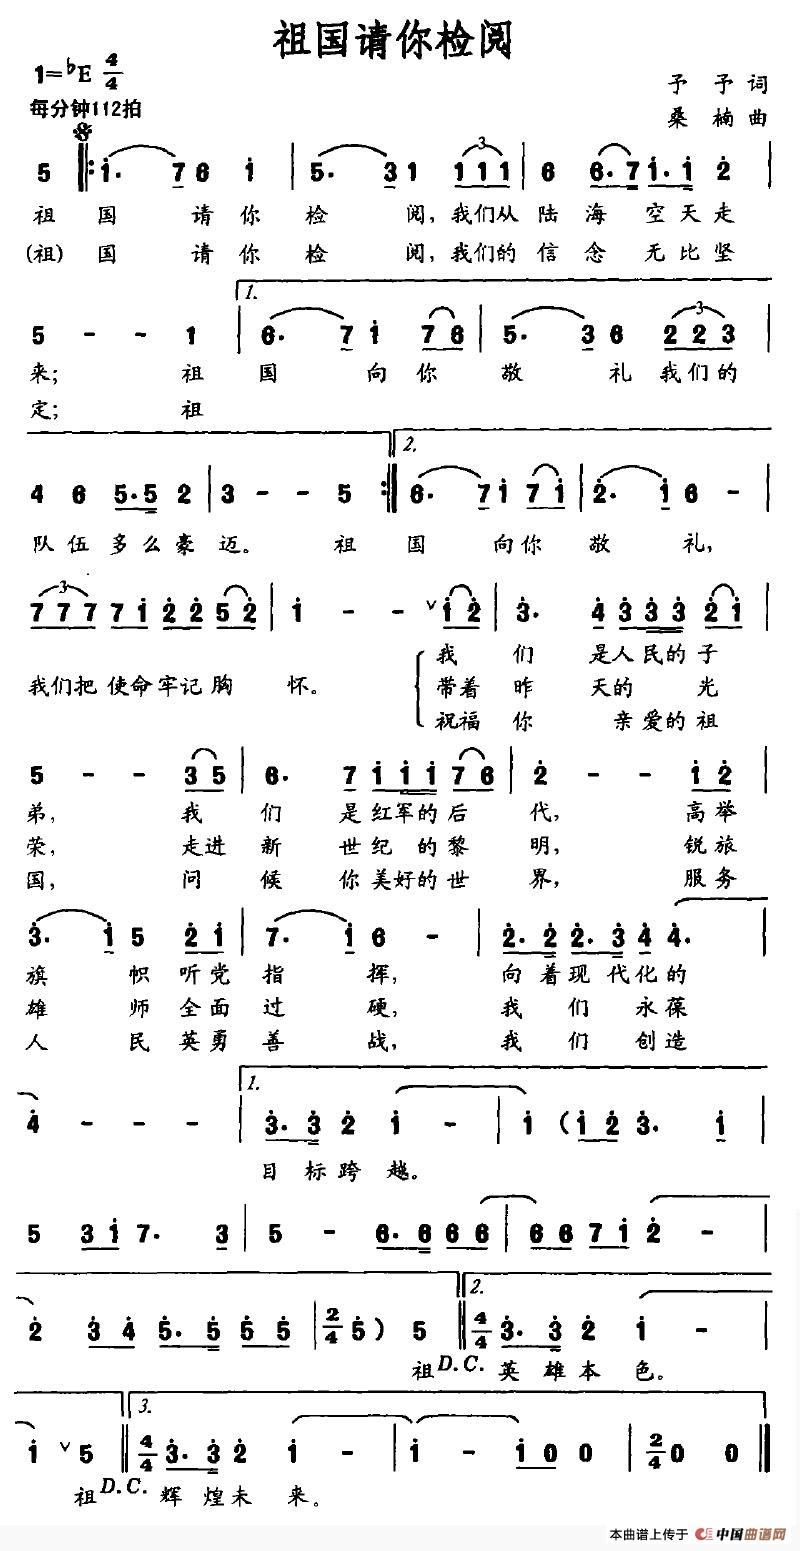 祖国请你检阅
1=♭E 4/4
予 予 词
每分钟112拍
桑 楠 曲
5 1· 7 6 1 | 5· 3 1 1 1 1 | 6 6·7 1·1 2 |
祖 国 请 你 检 阅，我们从 陆 海 空天走
(祖) 国 请 你 检 阅，我们的 信 念 无比坚
5 - - 1 | 1. 6· 7 1 7 6 | 5· 3 6 2 2 3 |
来； 祖 国 向 你 敬 礼 我们的
定； 祖
4 6 5·5 2 | 3 - - 5 :| 2. 6· 7 1 7 1 | 2· 1 6 - |
队 伍 多么豪 迈。 祖 国 向你 敬 礼，
7 7 7 7 1 2 2 5 2 | 1 - - ∨ 1 2 | 3· 4 3 3 3 2 1 |
我 们 是人民的子
我们把 使命牢记胸 怀。 带着 昨 天的 光
祝福 你 亲爱的祖
5 - - 3 5 | 6· 7 1 1 1 7 6 | 2 - - 1 2 |
弟， 我 们 是红军的后 代， 高举
荣， 走进 新 世纪 的黎 明， 锐旅
国， 问 候 你美好的世 界， 服务
3· 1 5 2 1 | 7· 1 6 - | 2·2 2·3 4 4·
旗 帜 听党 指 挥， 向着现 代化的
雄 师 全面 过 硬， 我 们 永葆
人 民 英勇 善 战， 我 们 创造
4 - - - | 1. 3·3 2 1 - | 1 ( 1 2 3· 1 |
目 标 跨 越。
5 3 1 7· 3 | 5 - 6·6 6 6 | 6 6 7 1 2 - |
2 3 4 5·5 5 5 | 2/4 5 ) 5 || 2. 4/4 3·3 2 1 - |
祖 D.C. 英雄本 色。
1 ∨ 5 || 3. 4/4 3·3 2 1 - | 1 - 1 0 0 | 2/4 0 0 ||
祖 D.C. 辉 煌未 来。
本曲谱上传于 中国曲谱网